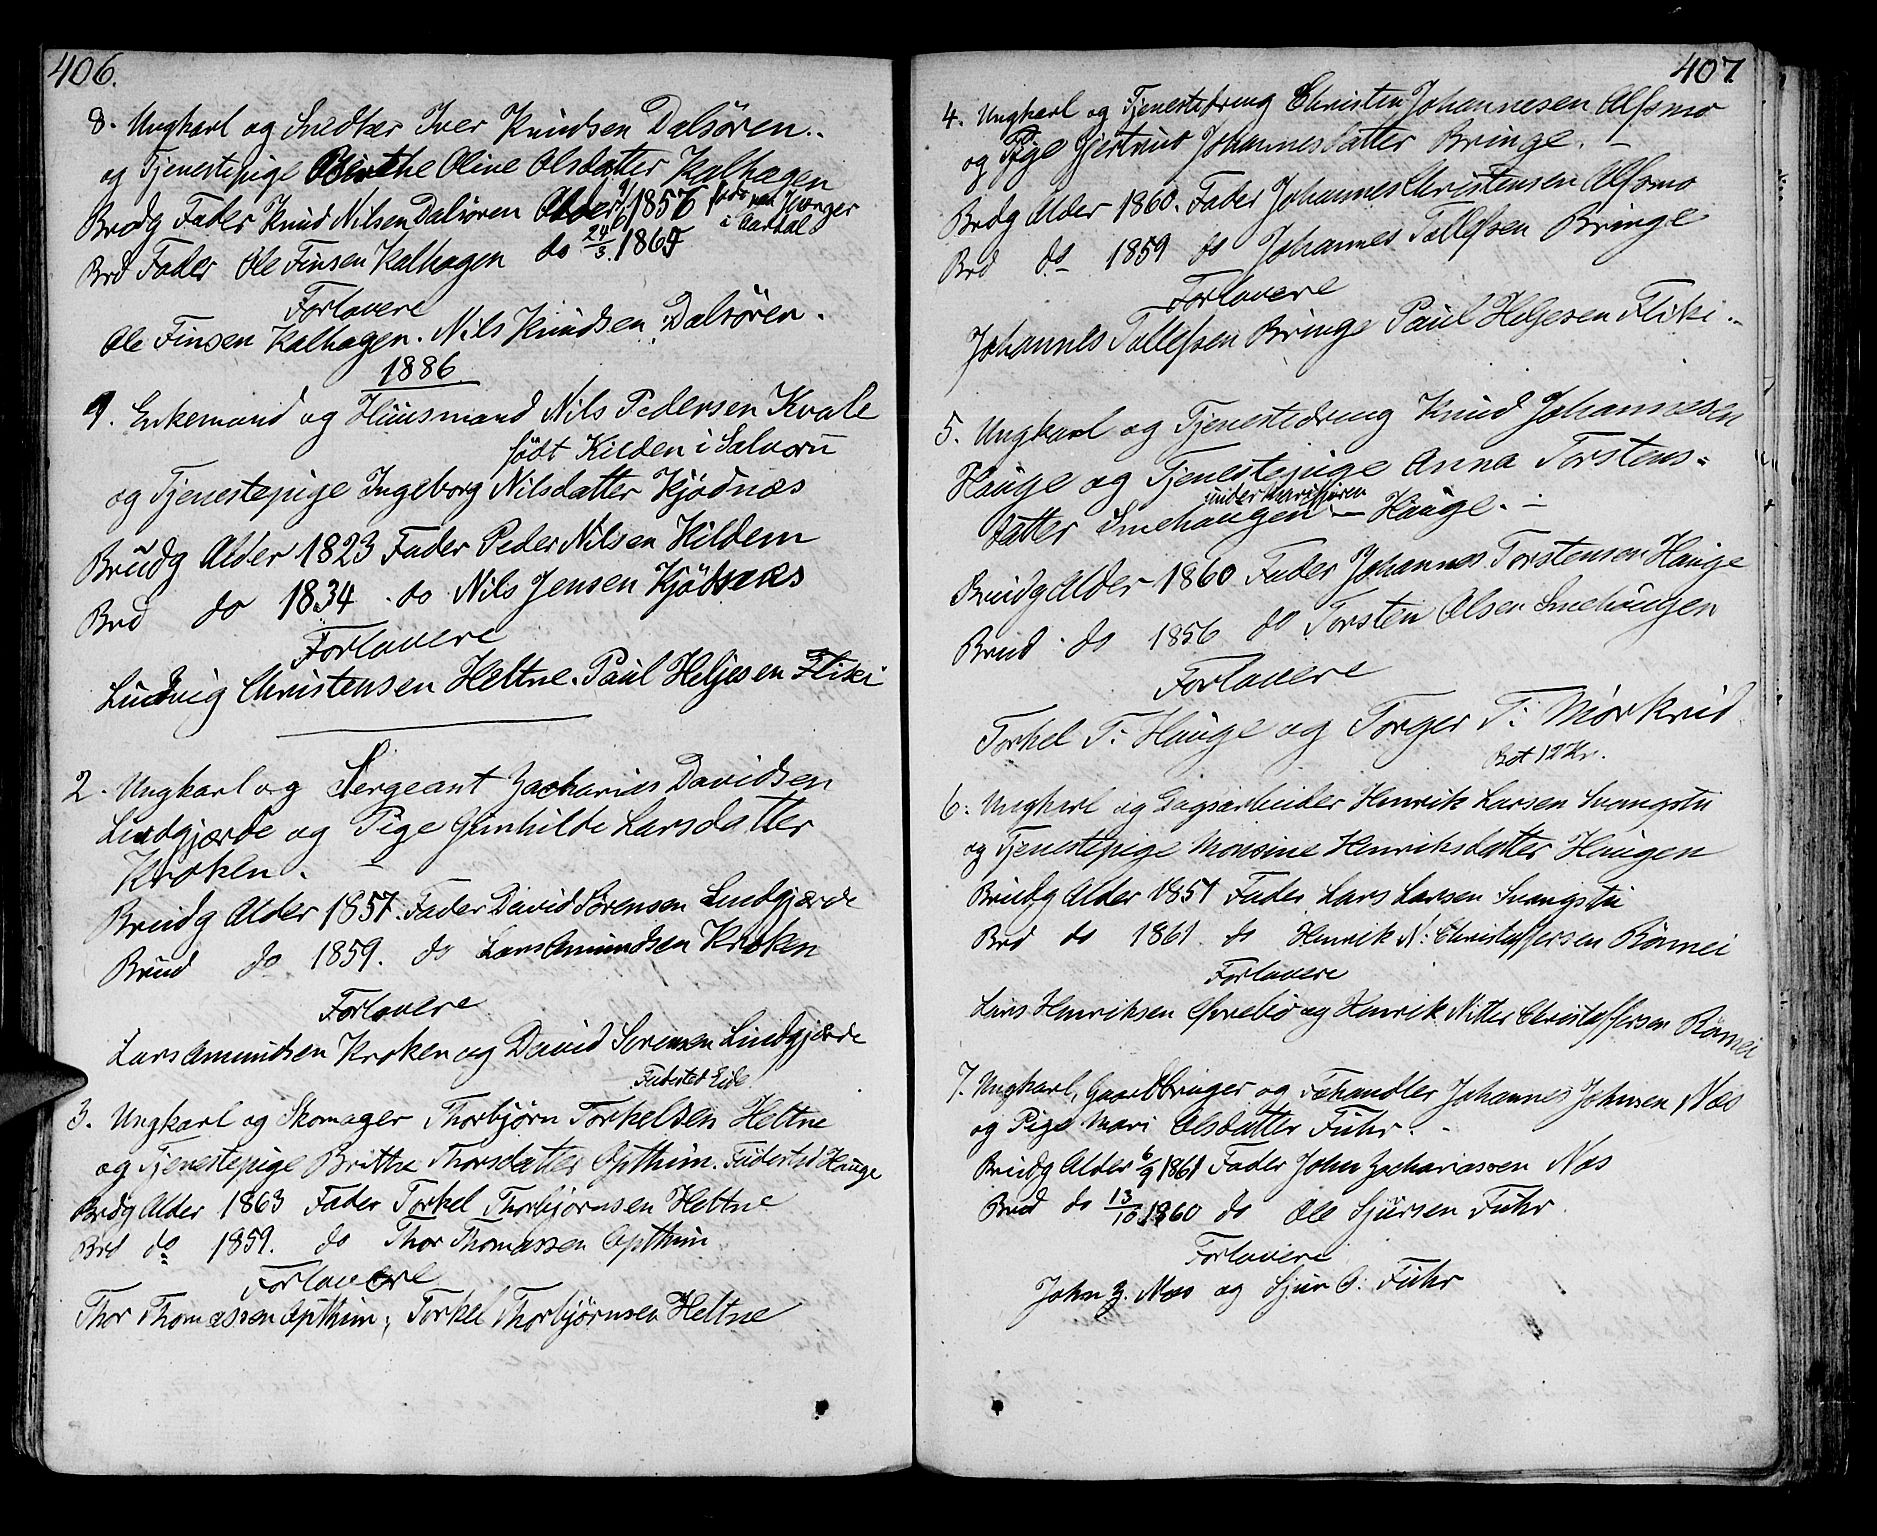 406.
8. Ungkarl og Snedker Iver Knudsen Dalsøren..
og Tjenestepige Birthe Oline Olsdatter Kalhagen
Brdg Fader Knud Nilsen Dalsøren Alder 1857 født paa
i Aardal
Brd Fader Ole Finsen Kalhagen do 24/3 1864
Forlovere
Ole Finsen Kalhagen. Nils Knudsen Dalsøren.
1886
1. Enkemand og Huusmand Nils Pedersen Kvale
født Kilden i Salvorn
og Tjenestepige Ingeborg Nilsdatter Kjødnæs
Brudg Alder 1823 Fader Peder Nilsen Kildem
Brd do 1834 do Nils Jensen Kjødnæs
Forlovere
Ludvig Christensen Heltne. Paul Heljesen Fliki
2. Ungkarl og Sergeant Zacharias Davidsen
Lindgjærde og Pige Gunhilde Larsdatter
Kroken.
Brudg Alder 1857. Fader David Sørensen Lindgjærde
Brud do 1859. do Lars Amundsen Kroken
Forlovere
Lars Amundsen Kroken og David Sørensen Lindgjærde
Fødested Eide
3. Ungkarl og Skomager Thorbjørn Torkelsen Heltne
og Tjenestepige Brithe Thorsdatter Opthun. Fødested Hauge
Brdg Alder 1863 Fader Torkel Thorbjørnsen Heltne
Brd do 1859. do Thor Thomassen Opthun
Forlovere
Thor Thomassen Opthun, Torkel Thorbjørnsen Heltne
407
4. Ungkarl og Tjenestedreng Christen Johannesen Alfsmo
og Pige Gjertrud Johannesdatter Bringe. –
Brdg Alder 1860. Fader Johannes Christensen Alfsmo
Brd do 1859 do Johannes Tollefsen Bringe
Forlovere
Johannes Tollefsen Bringe Paul Heljesen Fliki..
5. Ungkarl og Tjenestedreng Knud Johannesen
Hauge og Tjenestepige Anna Torstens=
under Marifjøren
datter Smehaugen – Hauge. –
Brudg Alder 1860 Fader Johannes Torstensen Hauge
Brud do 1856 do Torsten Olsen Smehaugen
Forlovere
Torkel T: Hauge og Torger T: Mørkrid.
Bet 12 Kr.
6. Ungkarl og Dagsarbeider Henrik Larsen Svangstu
og Tjenestepige Monsine Henriksdatter Haugen
Brudg Alder 1857 Fader Lars Larsen Svangstu
Brd do 1861. do Henrik N: Christoffersen Rønnei
Forlovere
Lars Henriksen Øvrebø og Henrik Nitter Christoffersen Rønnei
7. Ungkarl, Gaardbruger og Fæhandler Johannes Johnsen Næs
og Pige Mari Olsdatter Fuhr. -
Brudg Alder 6/9 1861 Fader John Zachariassen Næs
Brud do 13/10 1860 do Ole Sjursen Fuhr.
Forlovere
John Z. Næs og Sjur O: Fuhr